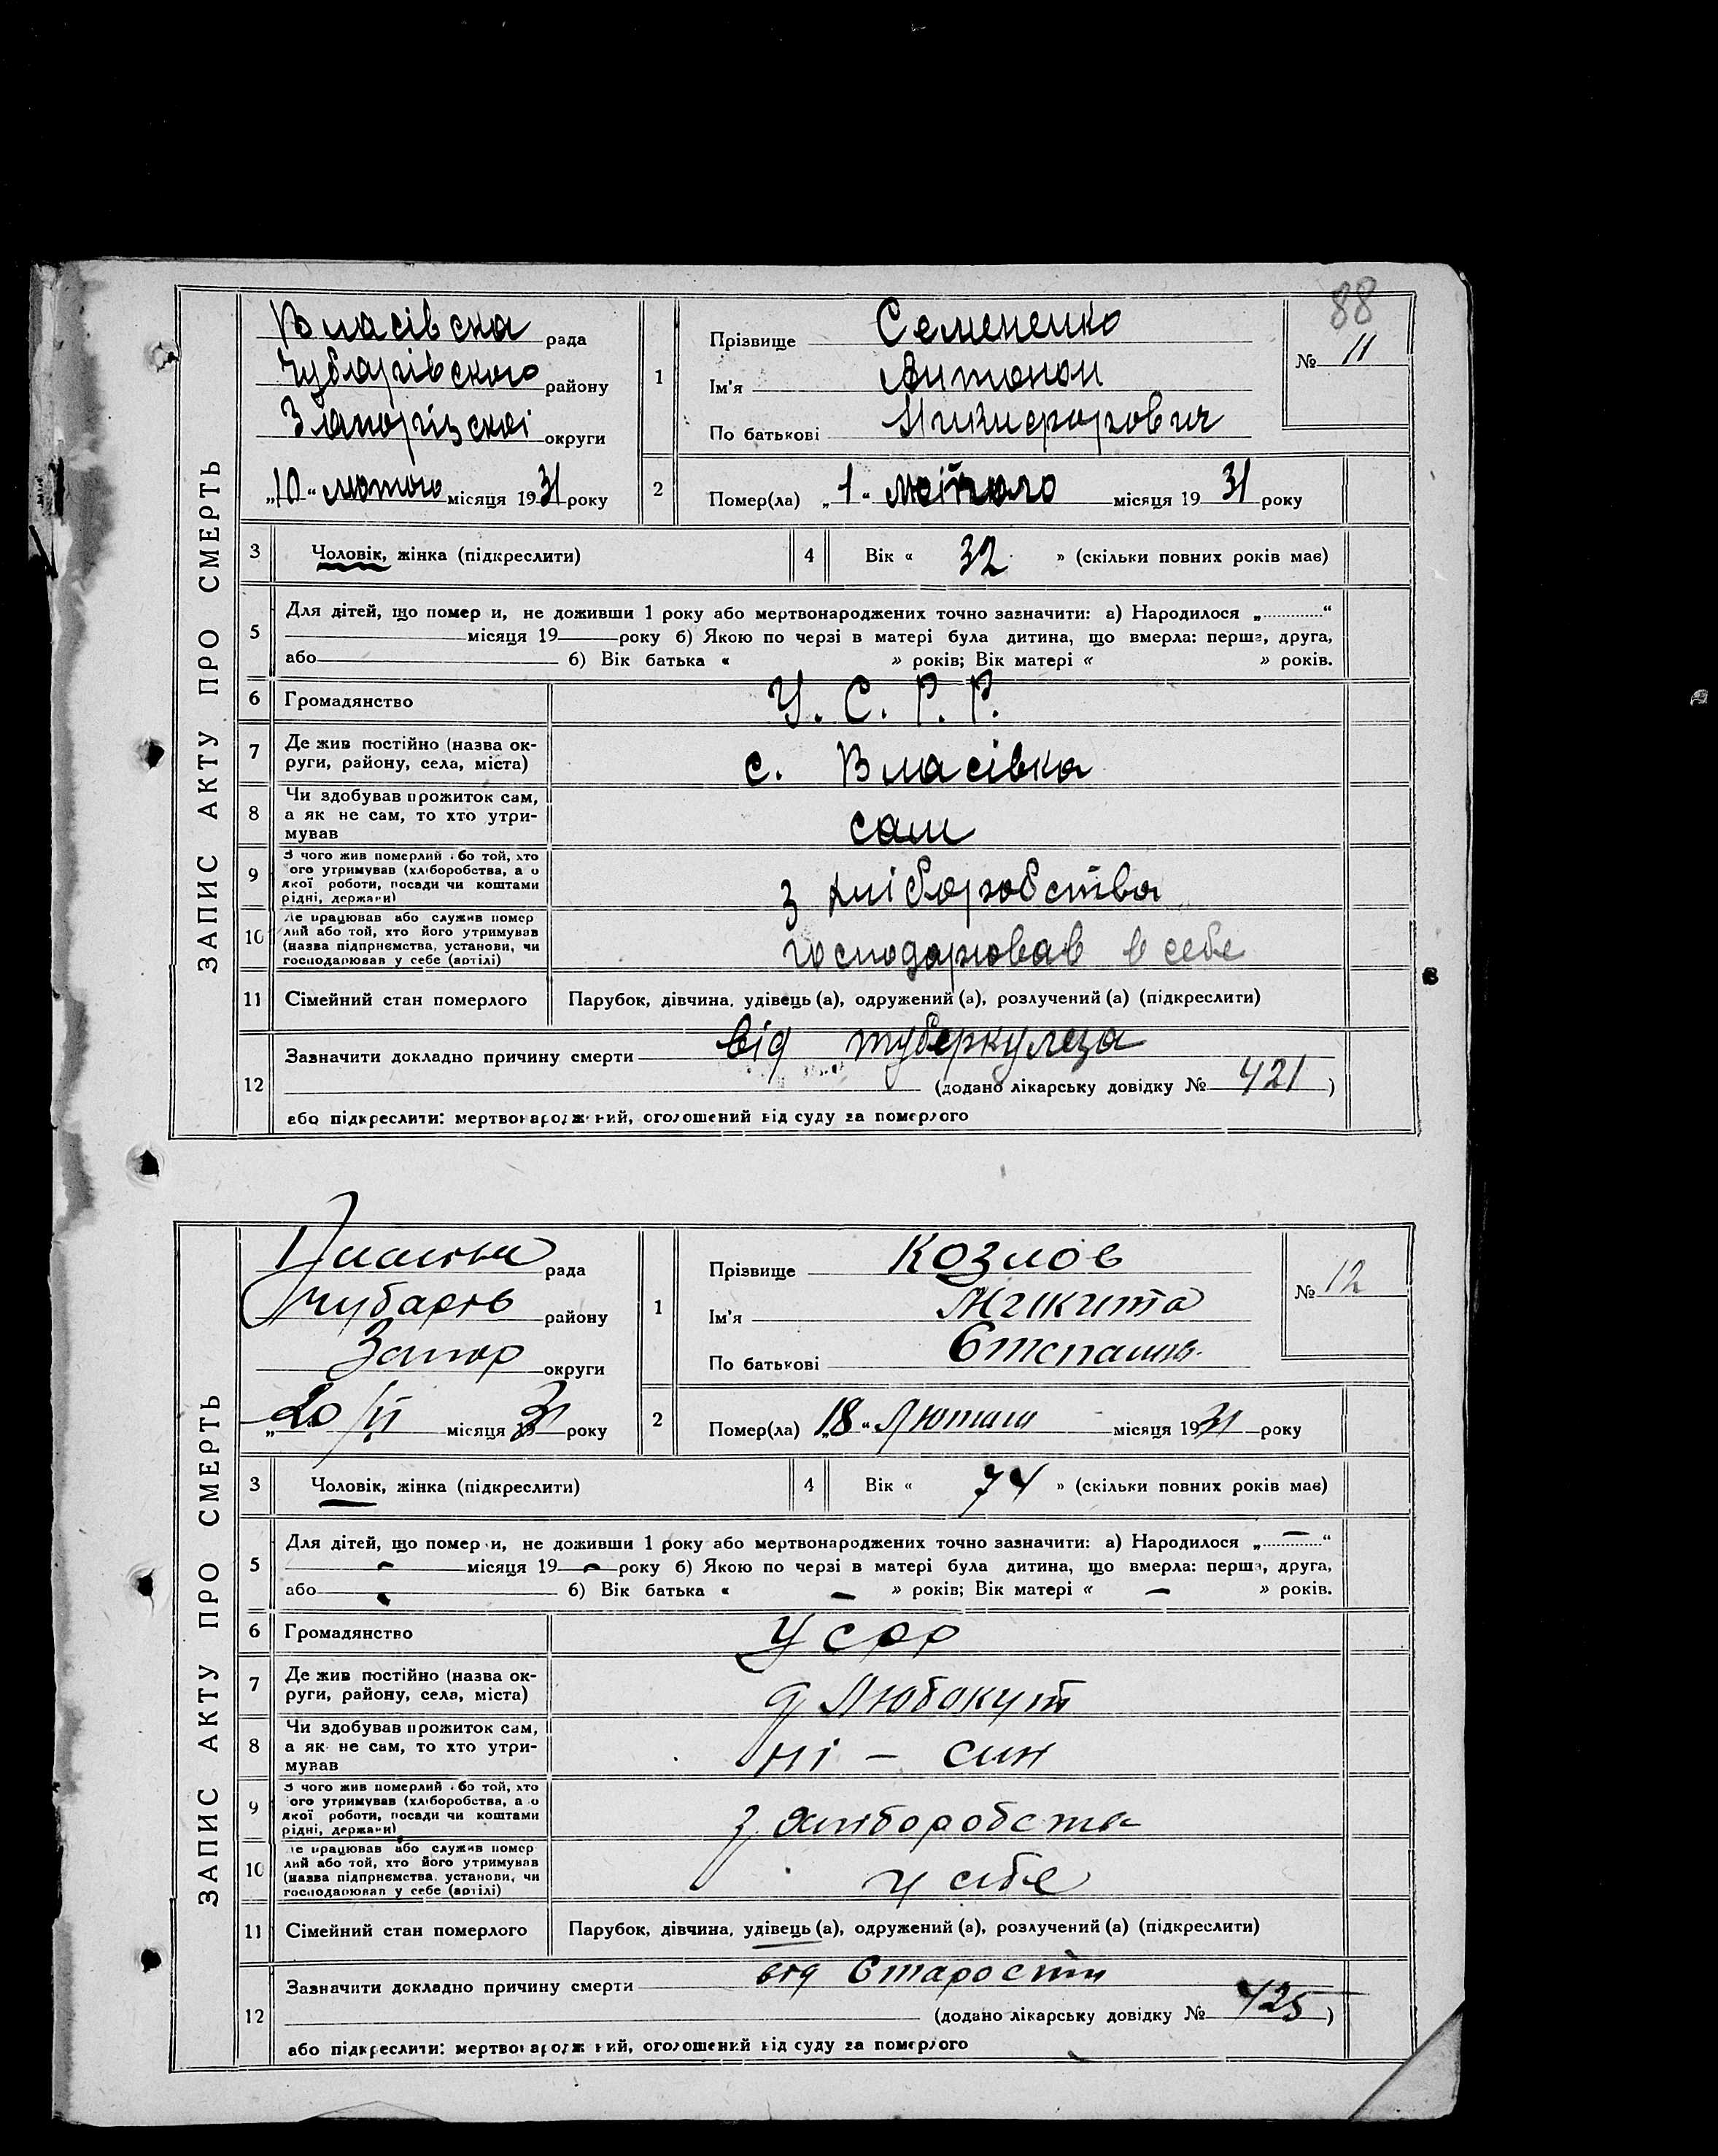 88
ЗАПИС АКТУ ПРО СМЕРТЬ
Власівска рада
Чубарівского району
Запорізскої округи
„10“ лютого місяця 1931 року
1
Прізвище Семененко
Ім'я Антонон
По батькові Никифорович
№ 11
2
Помер(ла) „1“ лютого місяця 1931 року
3 Чоловік, жінка (підкреслити)
4 Вік « 32 » (скільки повних років має)
5 Для дітей, що помер и, не доживши 1 року або мертвонароджених точно зазначити: а) Народилося „ “
місяця 19 року б) Якою по черзі в матері була дитина, що вмерла: перша, друга,
або б) Вік батька « » років; Вік матері « » років.
6 Громадянство У. С. Р. Р.
7 Де жив постійно (назва ок-
руги, району, села, міста) с. Власівка
8 Чи здобував прожиток сам,
а як не сам, то хто утри-
мував сам
9 З чого жив померлий або той, хто
ого утримував (хліборобства, а о
якої роботи, посади чи коштами
рідні, держави) з хліборобства
10 Де працював або служив помер
лий або той, хто його утримував
(назва підприємства, установи, чи
господарював у себе (артілі) господарював в себе
11 Сімейний стан померлого Парубок, дівчина, удівець (а), одружений (а), розлучений (а) (підкреслити)
12 Зазначити докладно причину смерти від туберкулеза
(додано лікарську довідку № 421)
або підкреслити: мертвонароджений, оголошений від суду за померлого
ЗАПИС АКТУ ПРО СМЕРТЬ
рада
Чубарів району
Запор округи
„20/II місяця 1931 року
1
Прізвище Козлов
Ім'я Микита
По батькові Степанов.
№ 12
2
Помер(ла) „18“ Лютого місяця 1931 року
3 Чоловік, жінка (підкреслити)
4 Вік « 74 » (скільки повних років має)
5 Для дітей, що помер и, не доживши 1 року або мертвонароджених точно зазначити: а) Народилося „ — “
— місяця 19 — року б) Якою по черзі в матері була дитина, що вмерла: перша, друга,
або — б) Вік батька « — » років; Вік матері « — » років.
6 Громадянство УСРР
7 Де жив постійно (назва ок-
руги, району, села, міста) д Любокут
8 Чи здобував прожиток сам,
а як не сам, то хто утри-
мував ні — син
9 З чого жив померлий або той, хто
ого утримував (хліборобства, а о
якої роботи, посади чи коштами
рідні, держави) з хліборобства
10 Де працював або служив помер
лий або той, хто його утримував
(назва підприємства, установи, чи
господарював у себе (артілі) у себе
11 Сімейний стан померлого Парубок, дівчина, удівець (а), одружений (а), розлучений (а) (підкреслити)
12 Зазначити докладно причину смерти від Старости
(додано лікарську довідку № 425)
або підкреслити: мертвонароджений, оголошений від суду за померлого